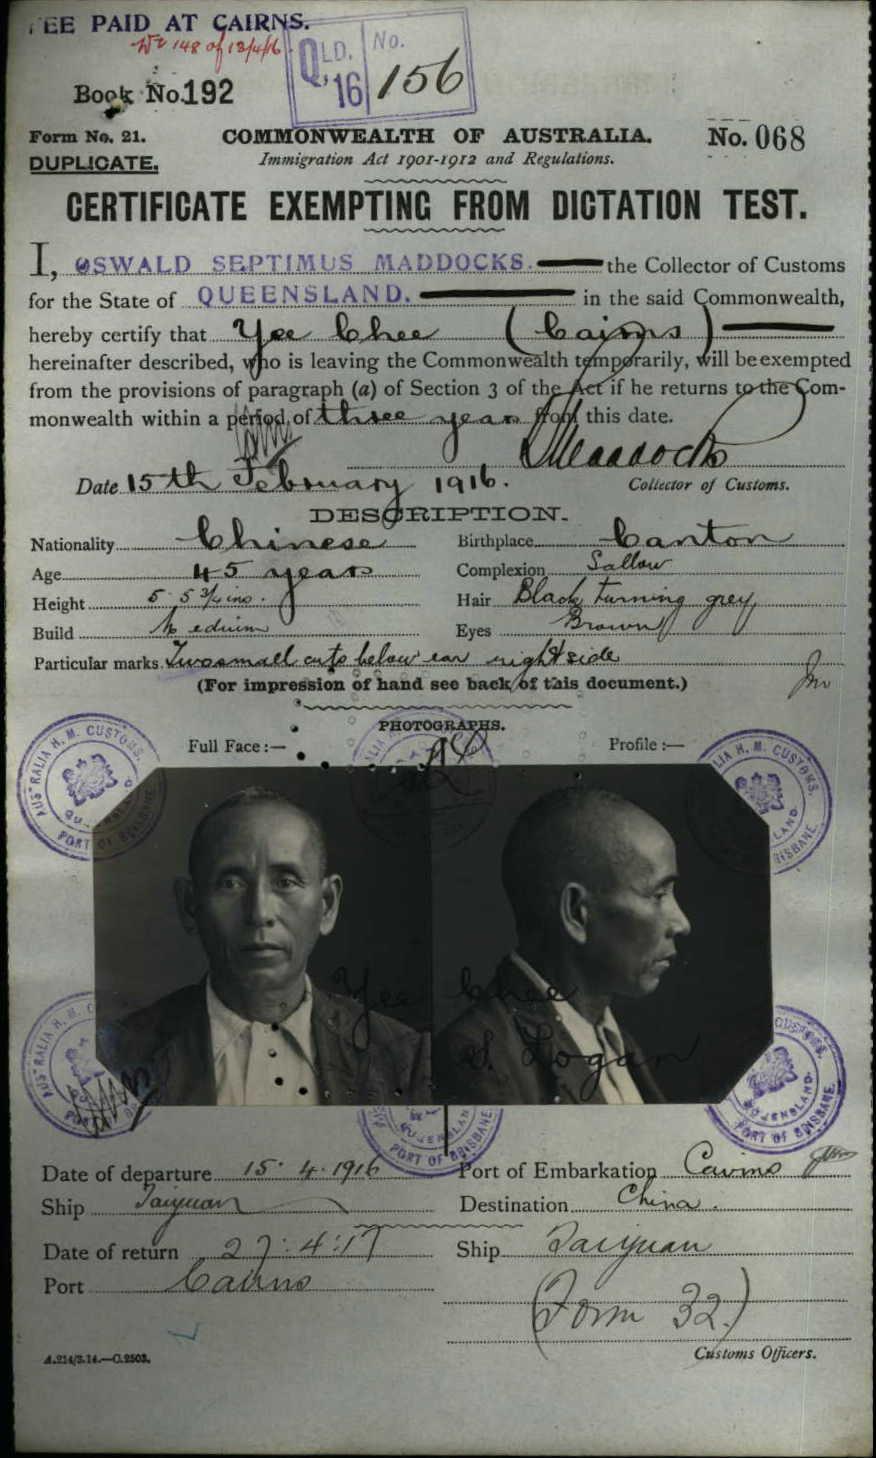 FEE PAID AT CAIRNS.
No 148 of 13/4/16
QLD. No.
'16 156
Book No. 192
Form No. 21. COMMONWEALTH OF AUSTRALIA. No. 068
DUPLICATE. Immigration Act 1901-1912 and Regulations.
CERTIFICATE EXEMPTING FROM DICTATION TEST.
I, OSWALD SEPTIMUS MADDOCKS. the Collector of Customs
for the State of QUEENSLAND. in the said Commonwealth,
hereby certify that Yee Chee (Cairns)
hereinafter described, who is leaving the Commonwealth temporarily, will be exempted
from the provisions of paragraph (a) of Section 3 of the Act if he returns to the Com-
monwealth within a period of three years from this date.
Maddocks
Date 15th February 1916. Collector of Customs.
DESCRIPTION.
Nationality Chinese Birthplace Canton
Age 45 years Complexion Sallow
Height 5' 5 3/4 ins. Hair Black turning grey
Build Medium Eyes Brown
Particular marks. Two small cuts below ear right side
(For impression of hand see back of this document.)
PHOTOGRAPHS.
Full Face :— Profile :—
AUSTRALIA H. M. CUSTOMS. QUEENSLAND PORT OF BRISBANE.
Yee Chee
S. Logan
Date of departure 15. 4. 1916 Port of Embarkation Cairns
Ship Taiyuan Destination China.
Date of return 27:4:17 Ship Taiyuan
Port Cairns
(Form 32.)
A.214/3.14.—C.2503. Customs Officers.